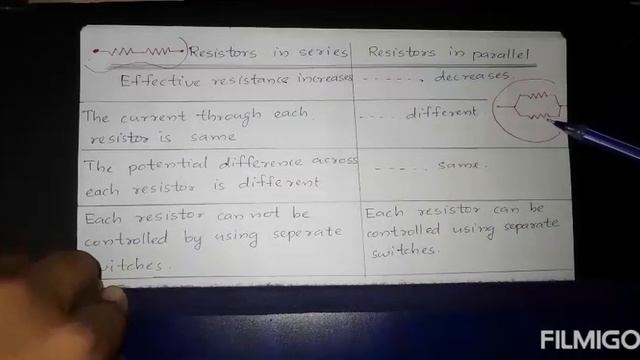 Resistors in series
Resistors in parallel
Effective resistance increases
------, decreases.
The current through each
resistor is same
---- different
The potential difference across
each resistor is different
----- same.
Each resistor can not be
controlled by using seperate
witches.
Each resistor can be
controlled using separate
switches.
FILMIGO